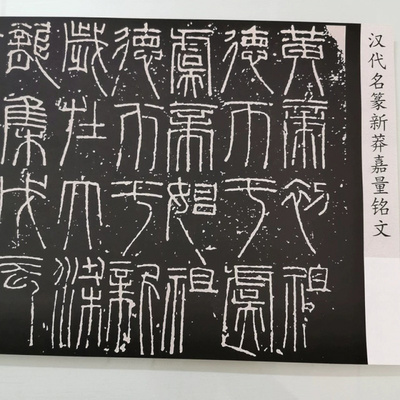 汉代名篆新莽嘉量铭文
黄帝初祖
德帀于虞
虞帝始祖
德帀于新
歲在大梁
龍集戊辰